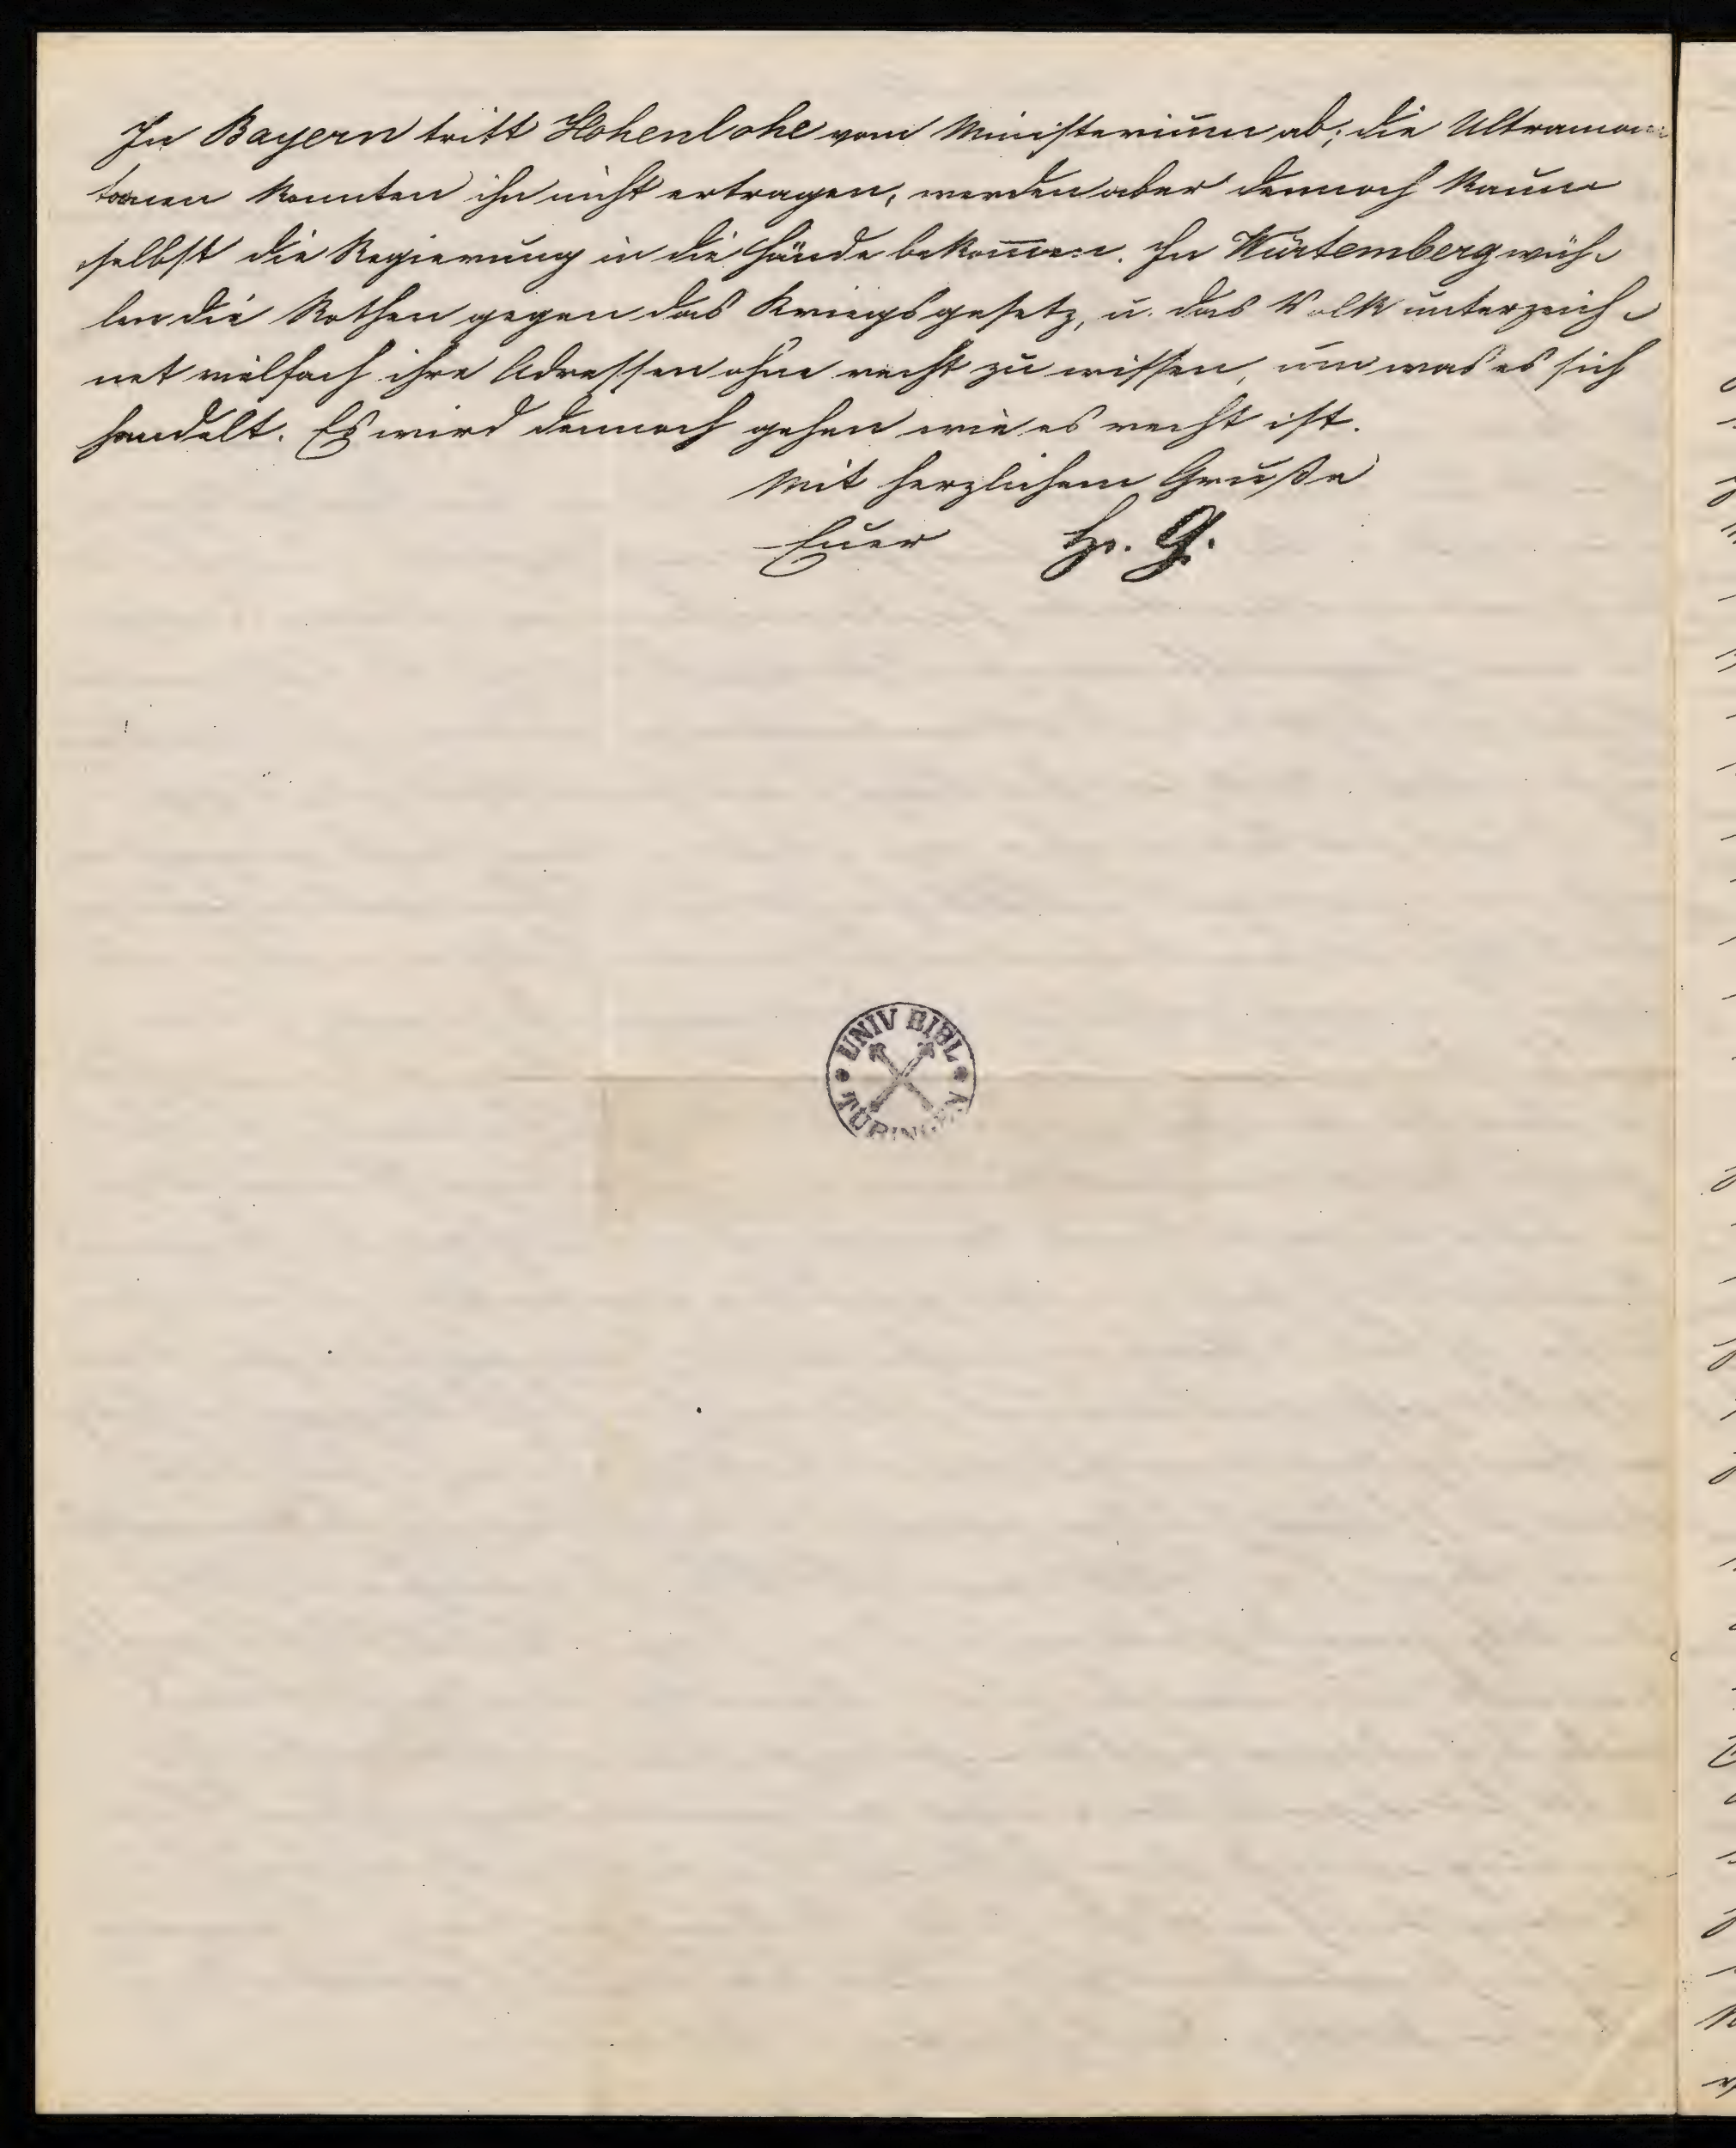 In Bayern tritt Hohenlohe vom Ministerium ab; die Ultramon
tanen konnten ihn nicht ertragen, werden aber dennoch kaum
selbst die Regierung in die Hände bekom̅en. In Würtemberg wüh-
len die Rothen gegen das Kriegsgesetz, u. das Volk unterzeich-
net vielfach ihre Adressen ohne recht zu wissen, um was es sich
handelt. Es wird dennoch gehen wie es recht ist.
Mit herzlichem Gruße
Euer H. G.
UNIV BIBL
TÜBINGEN